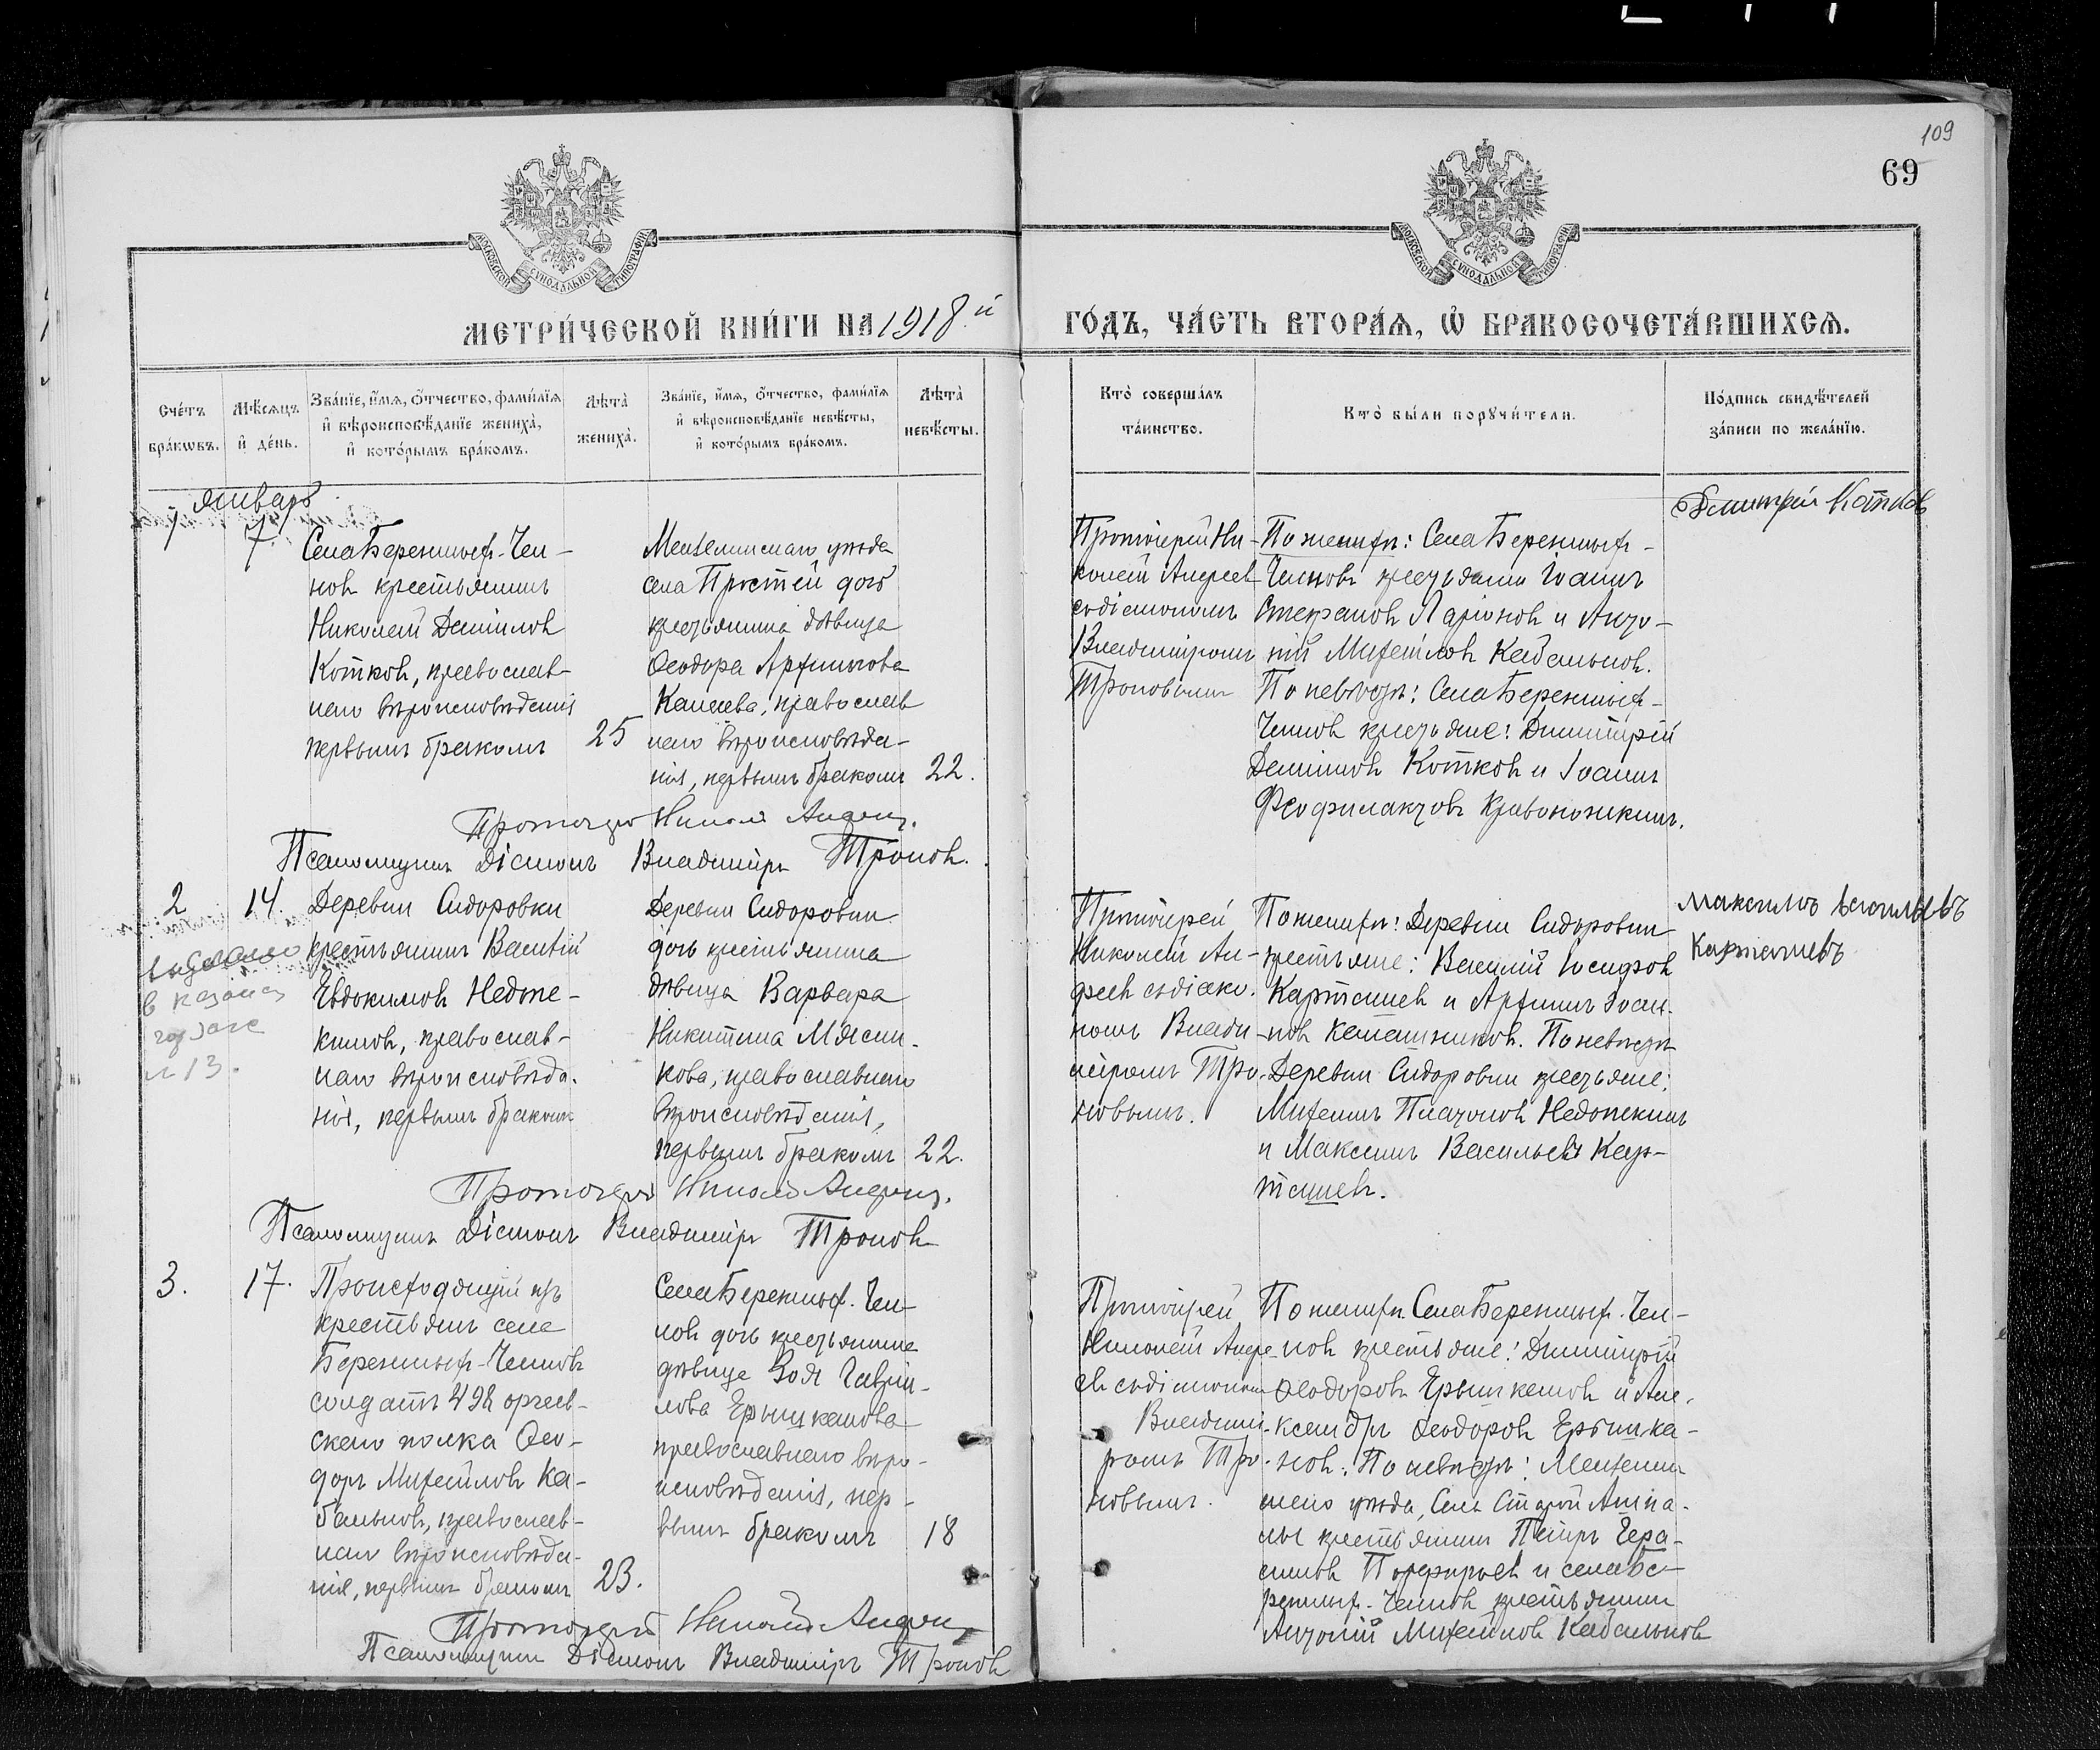 109
69
МОСКОВСКОЙ СУНОДАЛЬНОЙ ТИПОГРАФІИ
МОСКОВСКОЙ СУНОДАЛЬНОЙ ТИПОГРАФІИ
МЕТРИ́ЧЕСКОЙ КНИ́ГИ НА 1918.й
ГО́ДЪ, ЧА́СТЬ ВТОРА́Ѧ, Ѡ҆ БРАКОСОЧЕТА́ВШИХСѦ.
Сче́тъ бра́кѡвъ.
Мѣ́сѧцъ и҆ де́нь.
Зва́нїе, и҆́мѧ, ѻ҆́тчество, фами́лїѧ и҆ вѣроисповѣ́данїе жениха̀, и҆ кото́рымъ бра́комъ.
Лѣ́та̀ жениха̀.
Зва́нїе, и҆́мѧ, ѻ҆́тчество, фами́лїѧ и҆ вѣроисповѣ́данїе невѣ́сты, и҆ кото́рымъ бра́комъ.
Лѣ́та̀ невѣ́сты.
Кто̀ соверша́лъ та́инство.
Кто̀ бы́ли порꙋчи́тели.
По́дпись свидѣ́телей за́писи по жела́нїю.
январь
1
7.
Села Бережныхъ-Чел-
новъ крестьянинъ
Николай Даниловъ
Котковъ, православ-
наго вѣроисповѣданія
первымъ бракомъ
25
Мензелинскаго уѣзда
села Простей дочь
крестьянина дѣвица
Ѳеодора
Канаева, православ
наго вѣроисповѣда-
нія, первымъ бракомъ
22.
Протоіерей Ни-
колай Андреевъ
съ діакономъ
Владиміромъ
Троновымъ
По женихѣ: Села Бережныхъ-
Челновъ крестьяне Іоаннъ
Стефановъ Ларіоновъ и Анто-
ній Михайловъ Кабальновъ.
По невѣстѣ: Села Бережныхъ-
Челновъ крестьяне: Димитрій
Даниловъ Котковъ и Іоаннъ
Феофилактовъ Кривоножкинъ.
Дмитрій Катков
Протоіерей Николай Андреевъ.
Псаломщикъ Діаконъ Владиміръ Троновъ.
2
14.
выдано
в
года
н 13.
Деревни Сидоровки
крестьянинъ Василій
Евдокимовъ Недопе-
кинъ, православ-
наго вѣроисповѣда-
нія, первымъ бракомъ
Деревни Сидоровки
дочь крестьянина
дѣвица Варвара
Никитина Мясни-
кова, православнаго
вѣроисповѣданія,
первымъ бракомъ
22.
Протоіерей
Николай Ан-
дреевъ съ діако-
номъ Влади-
міромъ Тро-
новымъ.
По женихѣ: Деревни Сидоровки
крестьяне: Василій Іосифовъ
Карташевъ и Архипъ Іоан-
новъ Калашниковъ. По невѣстѣ
Деревни Сидоровки крестьяне:
Михаилъ Платоновъ Недопекинъ
и Максимъ Васильевъ Кар-
ташевъ.
Максимъ Васильевъ
Карташевъ
Протоіерей Николай Андреевъ.
Псаломщикъ Діаконъ Владиміръ Троновъ
3.
17.
Происходящій изъ
крестьянъ села
Бережныхъ-Челновъ
солдатъ 498 оргеев-
скаго полка Ѳео-
доръ Михайловъ Ка-
бальновъ, православ-
наго вѣроисповѣда-
нія, первымъ бракомъ
23.
Села Бережных. Чел-
новъ дочь крестьянина
дѣвица Зоя Гаврiи-
лова Ерышканова
православнаго вѣро-
исповѣданія, пер-
вымъ бракомъ
18
Протоіерей
Николай Андре-
евъ съ діакономъ
Владимі-
ромъ Тро-
новымъ.
По женихѣ Села Бережных. Чел-
новъ крестьяне: Димитрій
Ѳеодоровъ Ерышкановъ и Але-
ксандръ Ѳеодоровъ Ерышка-
новъ. По невѣстѣ: Мензелин-
скаго уѣзда, Села Старой
крестьянинъ Петръ Гера-
симовъ Порфирьевъ и села Бе-
режных. Челновъ крестьянинъ
Антоній Михайловъ Кабальновъ
Протоіерей Николай Андреевъ
Псаломщикъ Діаконъ Владиміръ Троновъ